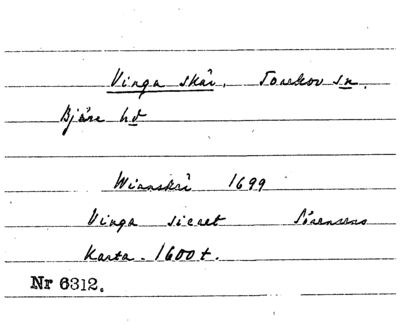 Vinga skär, Torekov sn.
Bjäre hd
Winnskär 1699
Vinga skeret Sörensens
Karta - 1600 t.
Nr 6312.